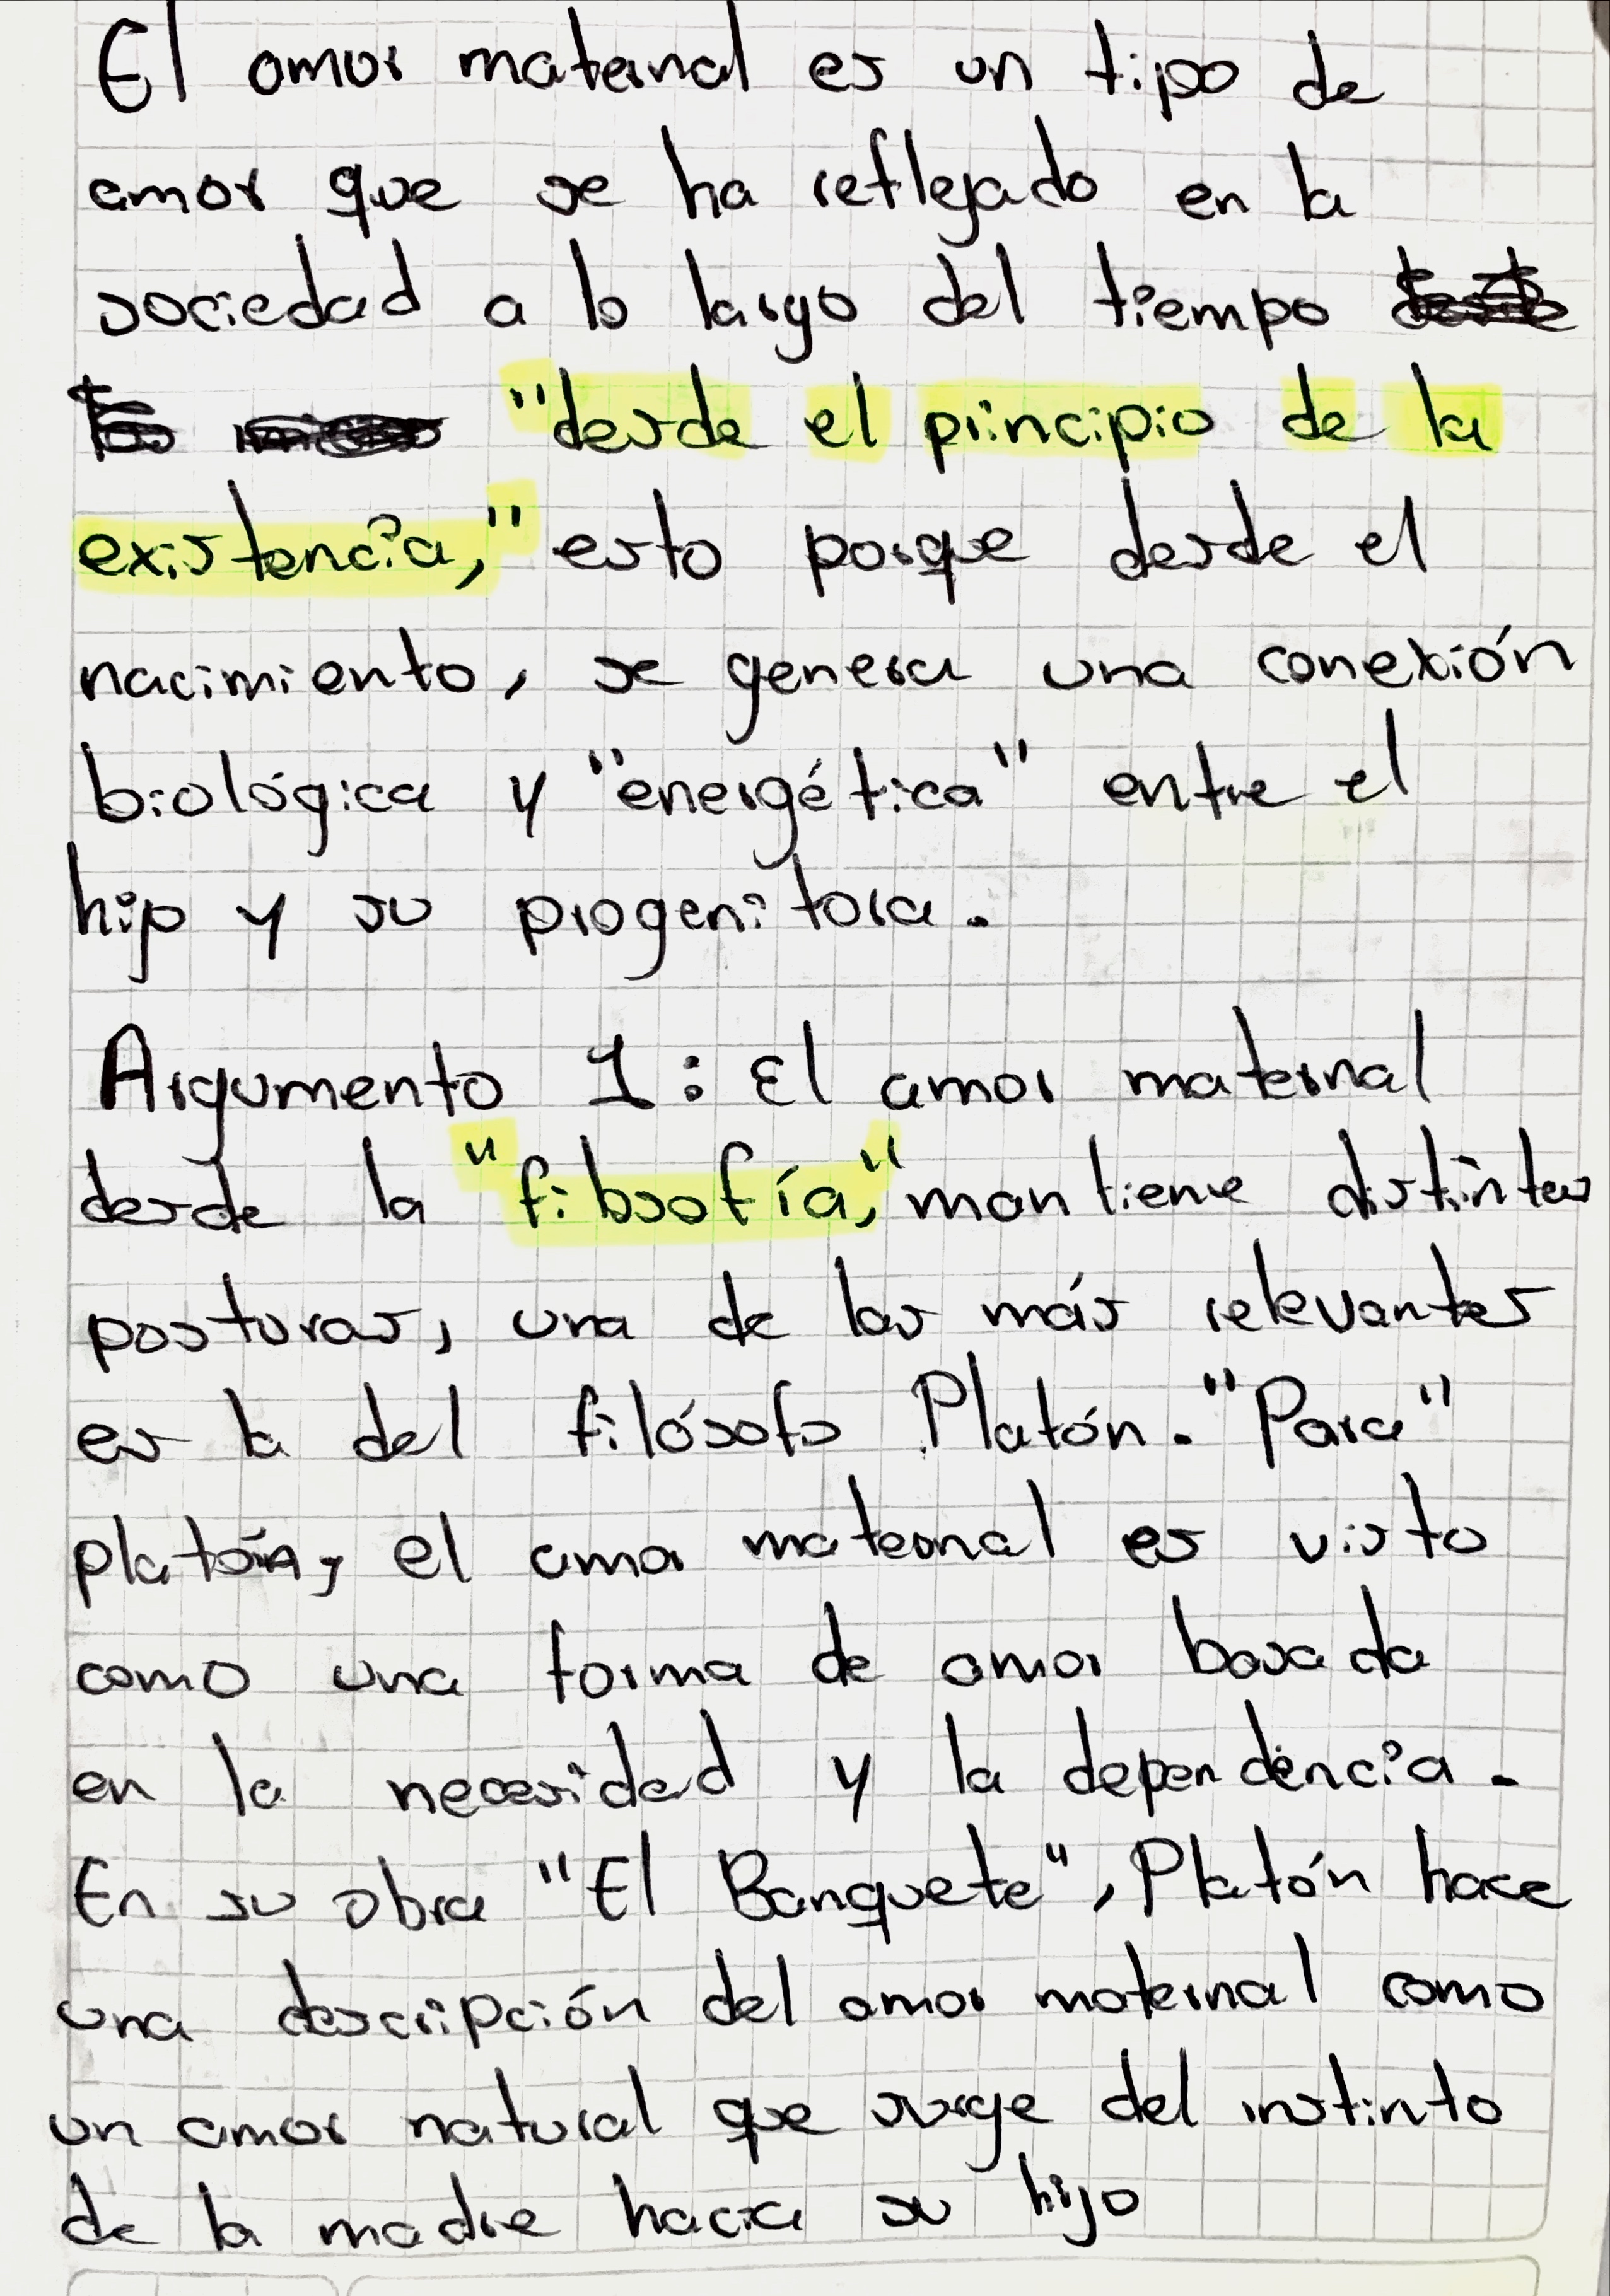 El amor maternal es un tipo de
amor que se ha reflejado en la
sociedad a lo largo del tiempo
"desde el principio de la
existencia," esto porque desde el
nacimiento, se genera una conexión
biológica y "energética" entre el
hijo y su progenitora.
Argumento 1: El amor maternal
desde la "filosofía," mantiene distintas
posturas, una de las más relevantes
es la del filósofo Platón. "Para"
platón, el amor maternal es visto
como una forma de amor basada
en la necesidad y la dependencia.
En su obra "El Banquete", Platón hace
una descripción del amor maternal como
un amor natural que surge del instinto
de la madre hacia su hijo